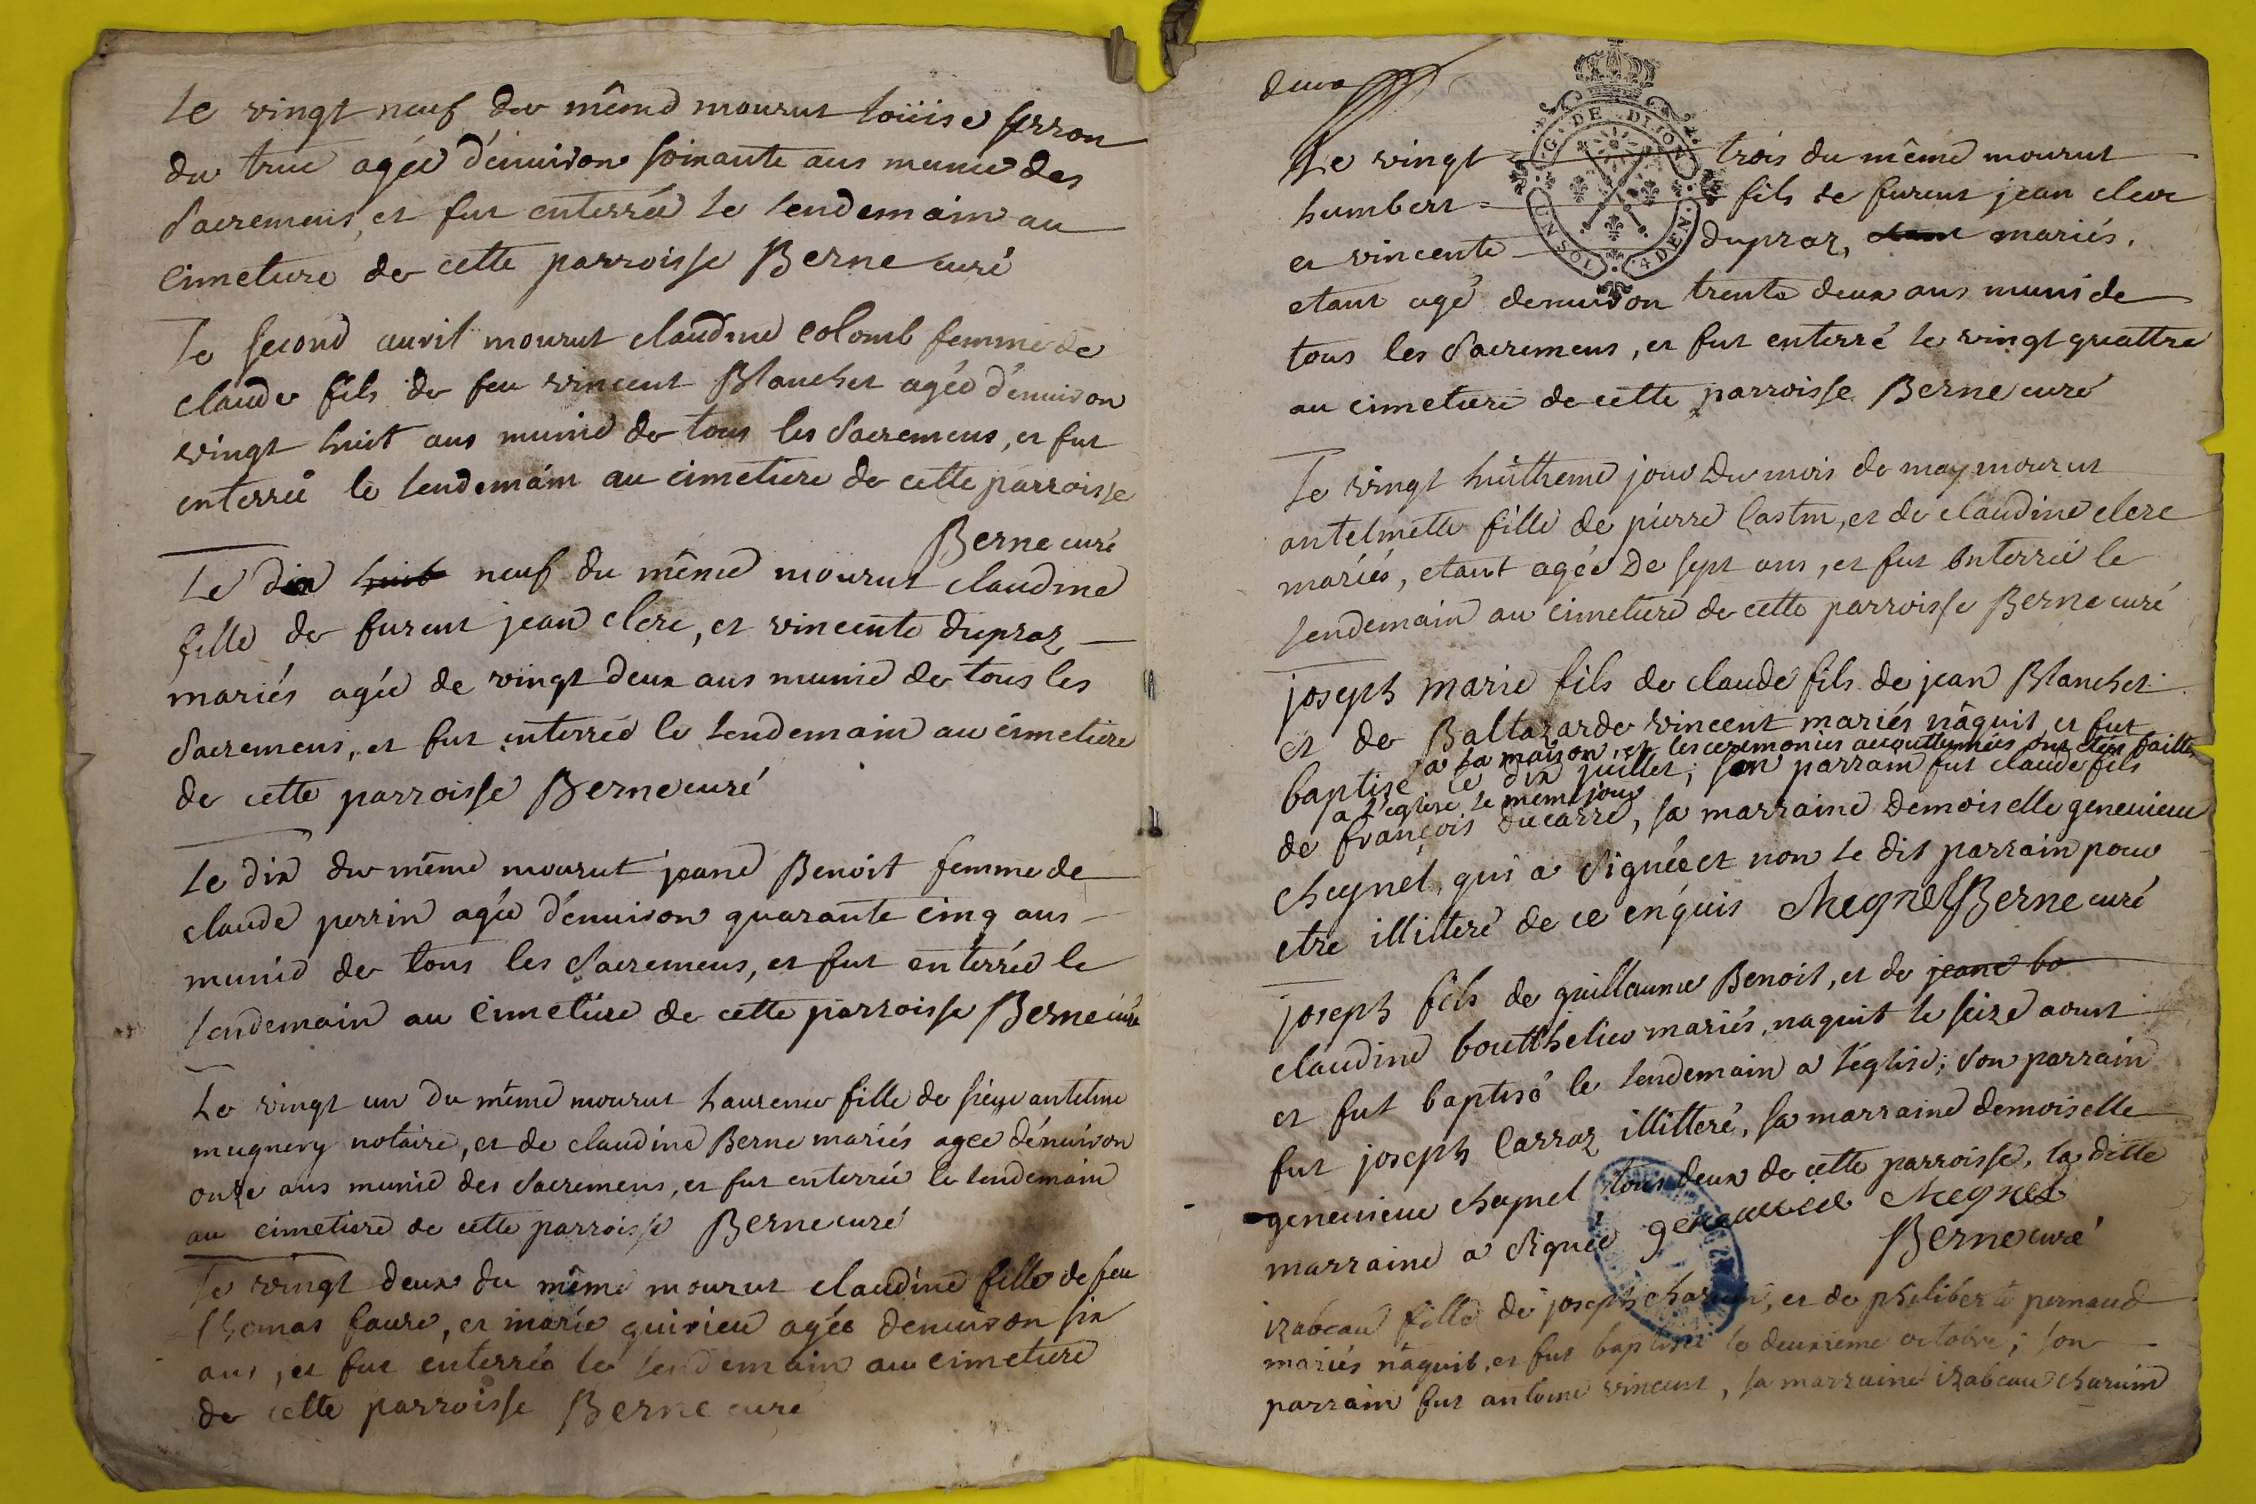 Le vingt neuf du même mourut Loüise
du truc agée d'énuiron soixante ans munie des
Sacremens, et fut enterrée le lendemain au
Cimetiere de cette parroisse Berne curé
Le second auril mourut claudine Colomb femme de
claude fils de feu vincent Blanchet agée d'enuiron
vingt huit ans munie de tous les Sacremens, et fut
enterreé le lendemain au cimetiere de cette parroisse
Berne curé
Le dix huit neuf du même mourut claudine
fille de furent jean clerc, et vincente dupraz
mariés agée de vingt deux ans munie de tous les
Sacremens, et fut enterreé le lendemain au cimetiere
de cette parroisse Berne curé
Le dix du même mourut jeane Benoit femme de
claude perrin agée d'énuiron quarante cinq ans
munie de tous les Sacremens, et fut enterreé le
lendemain au Cimetiere de cette parroisse Berne curé
Le vingt un du même mourut Laurence fille de sieur antelme
mugnery notaire, et de claudine Berne mariés agee dénuiron
onze ans munie des Sacremens, et fut enterrée le lendemain
au cimetiere de cette parroisse Berne curé
Le vingt deux du même mourut claudine fille de feu
thomas faure, et marie guirieu agée denuiron six
ans, et fut enterrée le lendemain au cimetiere
de cette parroisse Berne cure
deux
G. DE DIJON
UN SOL 4 DEN.
Le vingt trois du même mourut
humbert fils de furent jean clerc
et vincente dupraz, mariés,
etant agé denuiron trente deux ans muni de
tous les Sacremens, et fut enterré le vingt quattre
au cimetiere de cette parroisse Berne curé
Le vingt huittieme jour du mois de may mourut
antelmette fille de pierre Castin, et de claudine clerc
mariés, etant agée de sept ans, et fut enterreé le
lendemain au cimetiere de cette parroisse Berne curé
joseph marie fils de claude fils de jean Blanchet
et de Baltazarde vincent mariés nâquit et fut
a la maison, et les ceremonies accouttumées ont eté faittes
baptisé le dix juillet; son parrain fut claude fils
a l'eglise le meme jour
de françois ducarre, sa marraine Demoiselle geneuieue
cheynel, qui a signée et non le dit parrain pour
etre illitteré de ce enquis cheynel Berne curé
joseph fils de guillaume Benoit, et de jeane bo
claudine boutthelier mariés, naquit le seize aoust
et fut baptisé le lendemain a l'église; son parrain
fut joseph Carraz illitteré, sa marraine demoiselle
geneuieue cheynel tous deux de cette parroisse, la ditte
marraine a signée geneuieue cheynel
Berne curé
izabeau fille de joseph charuin, et de philiberte pernaud
mariés nâquit, et fut baptisée le deuxieme octobre; son
parrain fut antoine vincent, sa marraine izabeau charuin